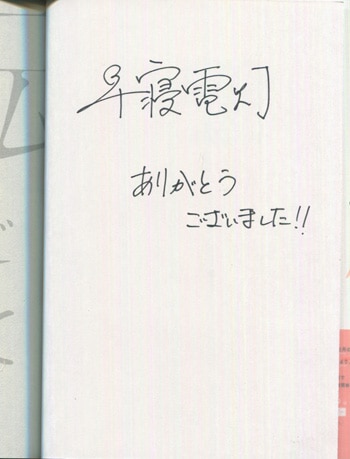 早寝電灯
ありがとう
ございました!!